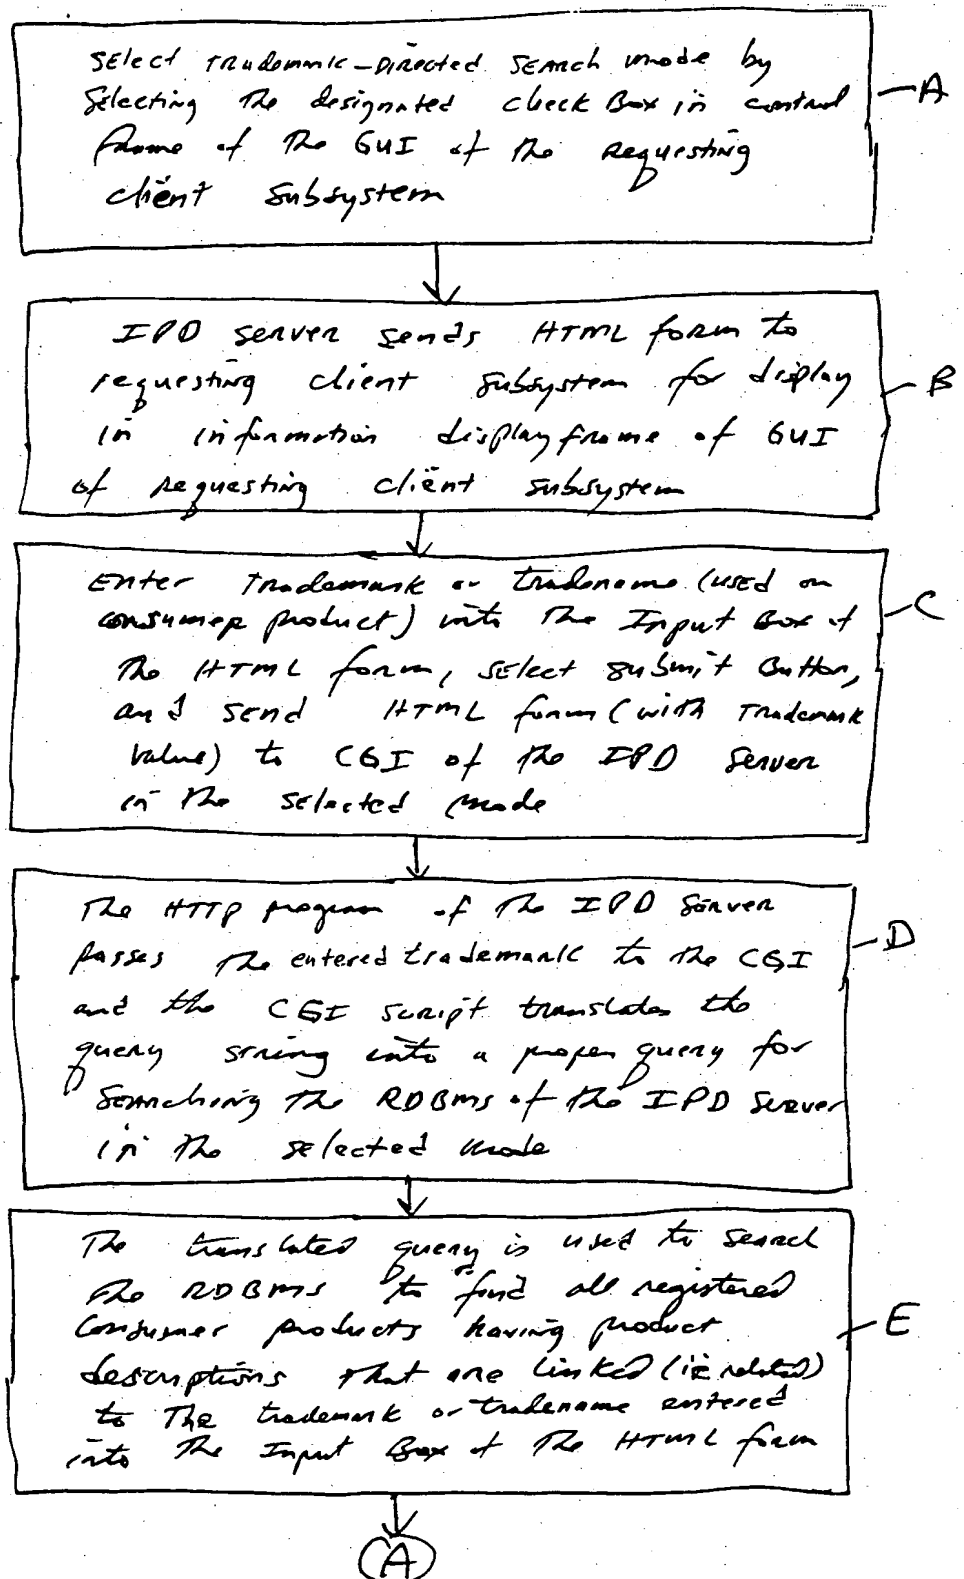 Select Trademark-Directed Search mode by
Selecting the designated check Box in control
frame of the GUI of the requesting
client subsystem
A
IPD server sends HTML form to
requesting client subsystem for display
in information display frame of GUI
of requesting client subsystem
B
Enter Trademark or tradename (used on
consumer product) into the Input Box of
the HTML form, select submit Button,
and send HTML form (with Trademark
value) to CGI of the IPD Server
in the selected mode
C
The HTTP program of the IPD Server
passes the entered trademark to the CGI
and the CGI script translates the
query string into a proper query for
searching the RDBMS of the IPD Server
in the selected mode
D
The translated query is used to search
the RDBMS to find all registered
Consumer products having product
descriptions that are linked (ie related)
to The trademark or tradename entered
into the Input Box of the HTML form
E
A